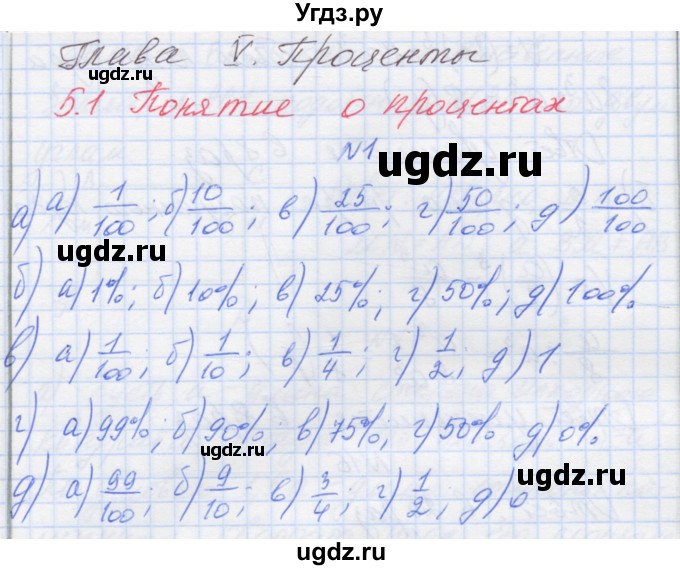 Угдз.ру
Глава V. Проценты
ugdz.ru
5.1 Понятие о процентах
ugdz.ru
№1
а) а) 1/100; б) 10/100; в) 25/100; г) 50/100; д) 100/100
ugdz.ru ugdz.ru
б) а) 1%; б) 10%; в) 25%; г) 50%; д) 100%
ugdz.ru
в) а) 1/100; б) 1/10; в) 1/4; г) 1/2; д) 1
ugdz.ru
ugdz.ru
г) а) 99%; б) 90%; в) 75%; г) 50% д) 0%
ugdz.ru
д) а) 99/100; б) 9/10; в) 3/4; г) 1/2; д) 0
ugdz.ru
ugdz.ru